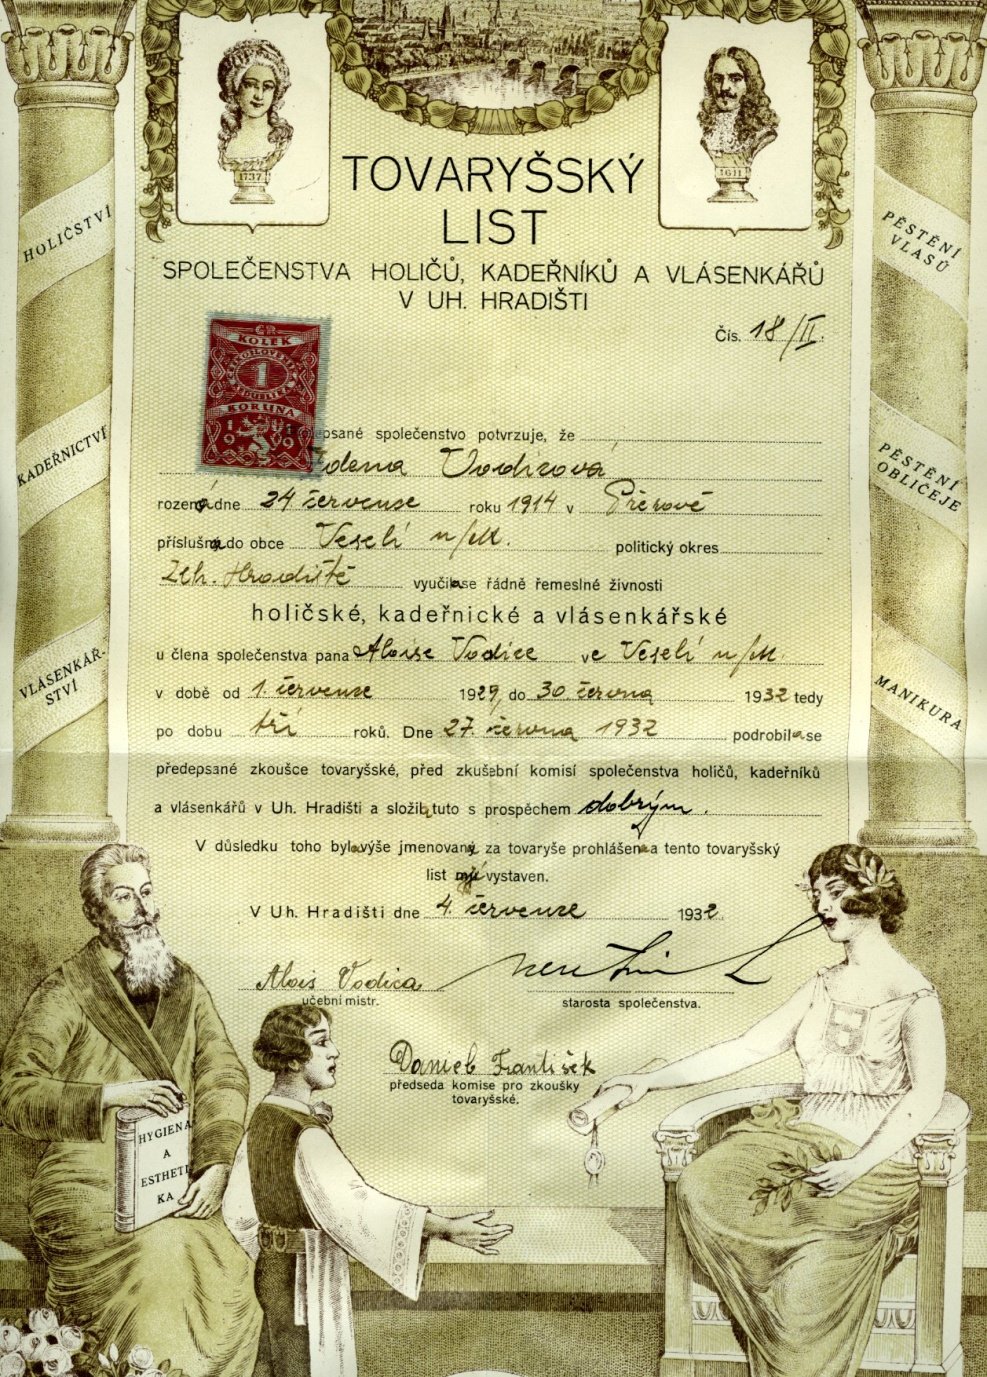 1737
1611
TOVARYŠSKÝ
LIST
SPOLEČENSTVA HOLIČŮ, KADEŘNÍKŮ A VLÁSENKÁŘŮ
V UH. HRADIŠTI
Čís. 18/II.
HOLIČSTVÍ
KADEŘNICTVÍ
VLÁSENKÁŘ-
STVÍ
PĚSTĚNÍ
VLASŮ
PĚSTĚNÍ
OBLIČEJE
MANIKURA
KOLEK
1
KORUNA
1919
společenstvo potvrzuje, že
Zdena Vodicová
rozená dne 24 července roku 1914 v Přerově
příslušná do obce Veselí n/M. politický okres
Uh. Hradiště vyučila se řádně řemeslné živnosti
holičské, kadeřnické a vlásenkářské
u člena společenstva pana Aloise Vodice ve Veselí n/M
v době od 1. července 1929, do 30. června 1932 tedy
po dobu tří roků. Dne 27. června 1932 podrobila se
předepsané zkoušce tovaryšské, před zkušební komisí společenstva holičů, kadeřníků
a vlásenkářů v Uh. Hradišti a složila tuto s prospěchem dobrým.
V důsledku toho byla výše jmenovaná za tovaryše prohlášena a tento tovaryšský
list jí vystaven.
V Uh. Hradišti dne 4. července 1932.
Alois Vodica
učební mistr.
starosta společenstva.
Daniel František
předseda komise pro zkoušky
tovaryšské.
HYGIENA
A
ESTHETI
KA